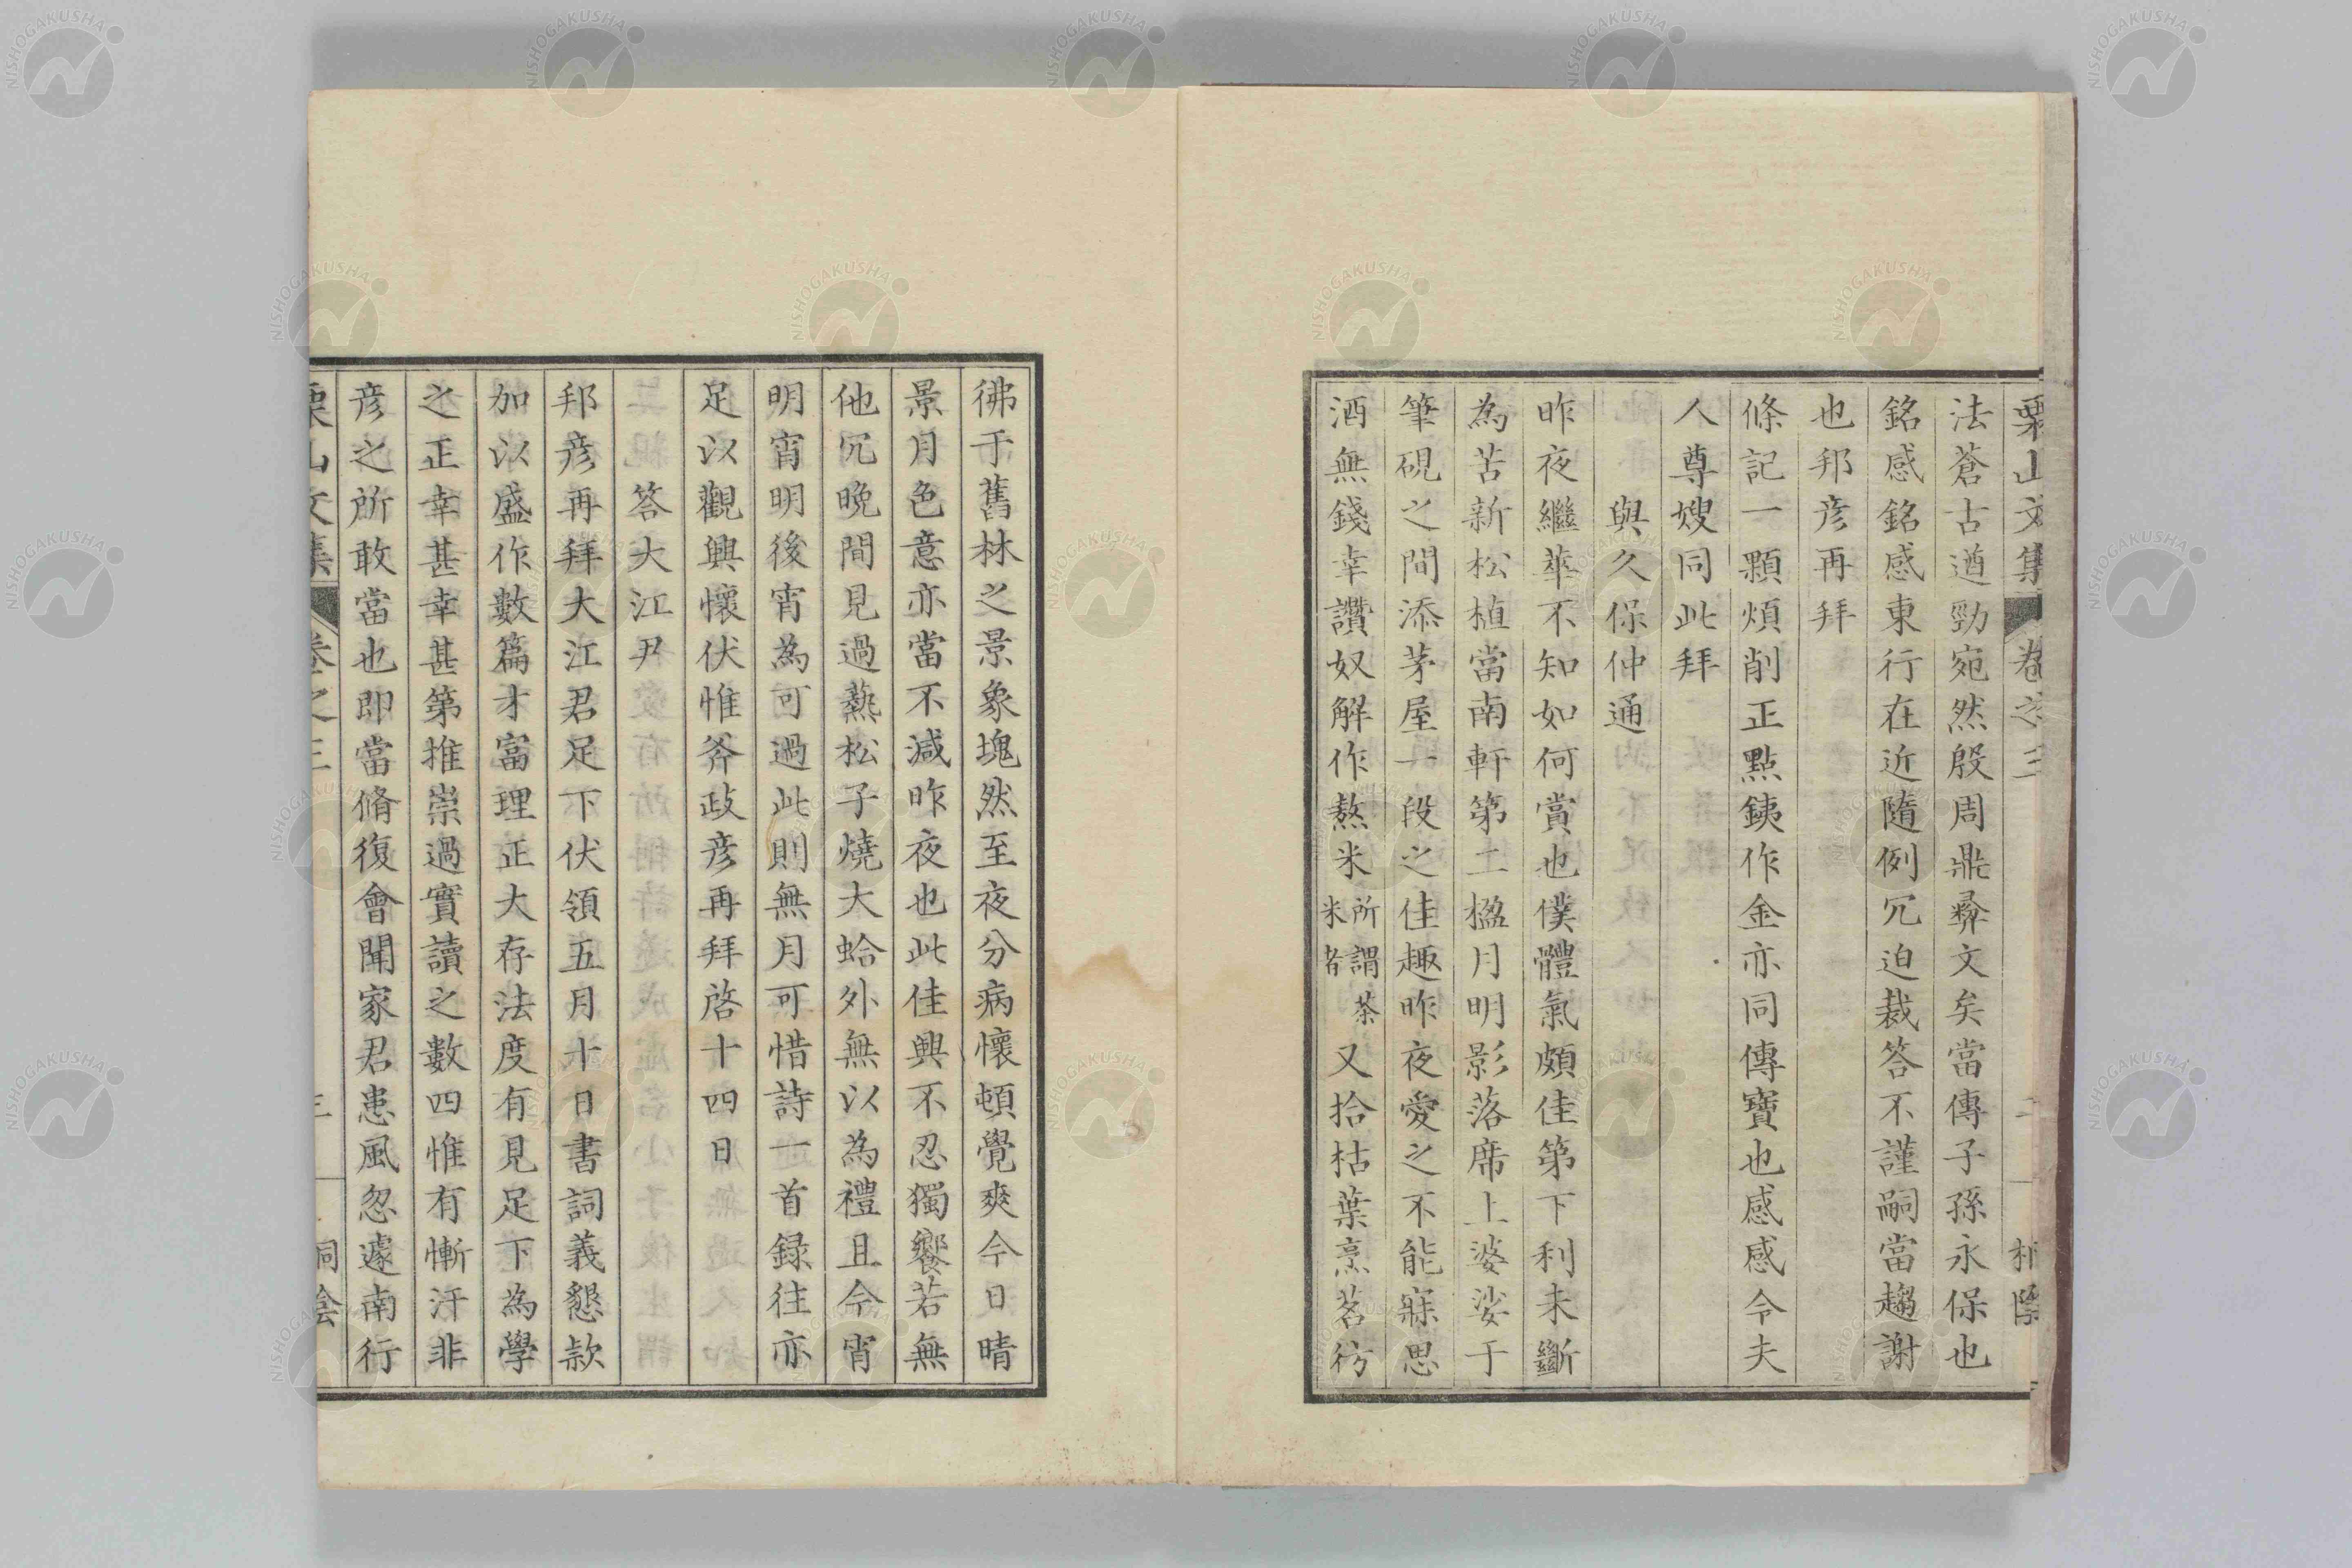 法蒼古遒勁宛然殷周鼎彜文矣當傳子孫永保也
銘感銘感東行在近隨例冗迫裁答不謹嗣當趨謝
也邦彦再拜
條記一顆煩削正點銕作金亦同傳寶也感感令夫
人尊嫂同此拜
與久保仲通
昨夜繼華不知如何賞也僕體氣頗佳第下利未斷
為苦新松植當南軒第二楹月明影落席上婆娑于
筆硯之間添茅屋一段之佳趣昨夜愛之不能寐思
酒無錢幸讚奴解作熬米所謂茶米者又拾枯葉烹茗彷
彿于舊林之景象塊然至夜分病懷頓覺爽今日晴
景月色意亦當不減昨夜也此佳興不忍獨饗若無
他冗晩間見過爇松子燒大蛤外無以為禮且今宵
明宵明後宵為可過此則無月可惜詩一首録往亦
足以觀興懷伏惟斧政彦再拜啓十四日
答大江尹
邦彦再拜大江君足下伏領五月十日書詞義懇款
加以盛作數篇才富理正大存法度有見足下為學
之正幸甚幸甚第推崇過實讀之數四惟有慚汗非
彦之所敢當也即當脩復會聞家君患風忽遽南行
栗山文集
卷之三
二
三
NISHOGAKUSHA